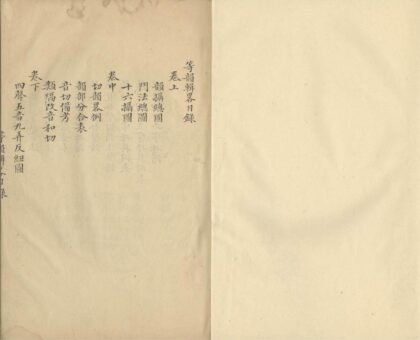 等韻輯畧目錄
卷上
韻攝總圖
門法總圖
十六攝圖
卷中
切韻畧例
韻部分合表
音切備考
類隔改音和切
卷下
四聲五音九弄反紐圖